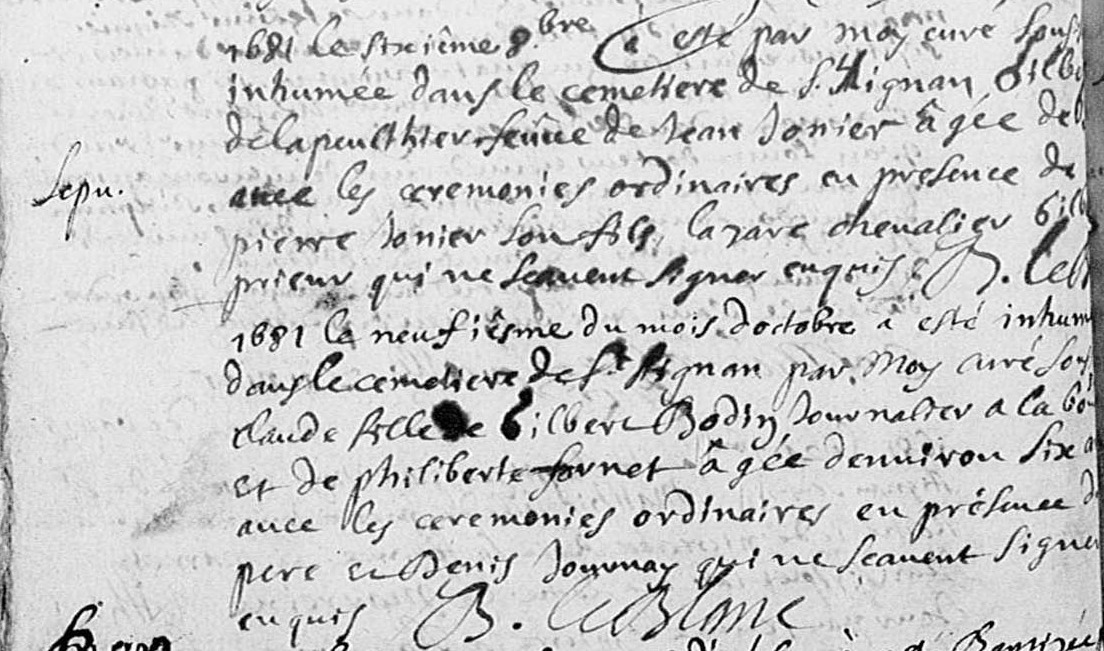 1681 le sixième 8.bre a esté par moy curé sous
inhumée dans le cemetiere de S. Aignan Gilb
delapeulthier feme de Jean Jonier âgée de
Sepu.
avec les ceremonies ordinaires en presence de
pierre Jonier son fils, lazare chevalier Gilb
prieur qui ne scavent signer enquis B. leb
1681 le neufiesme du mois doctobre a esté inhum
dans le cemetiere de St Aignan par moy curé sou
claude fille de Gilbert Bodin Journalier a la
et de philiberte fornet âgée denviron six a
avec les ceremonies ordinaires en présence d
pere et Denis Journay qui ne scavent signe
enquis B. leBlanc